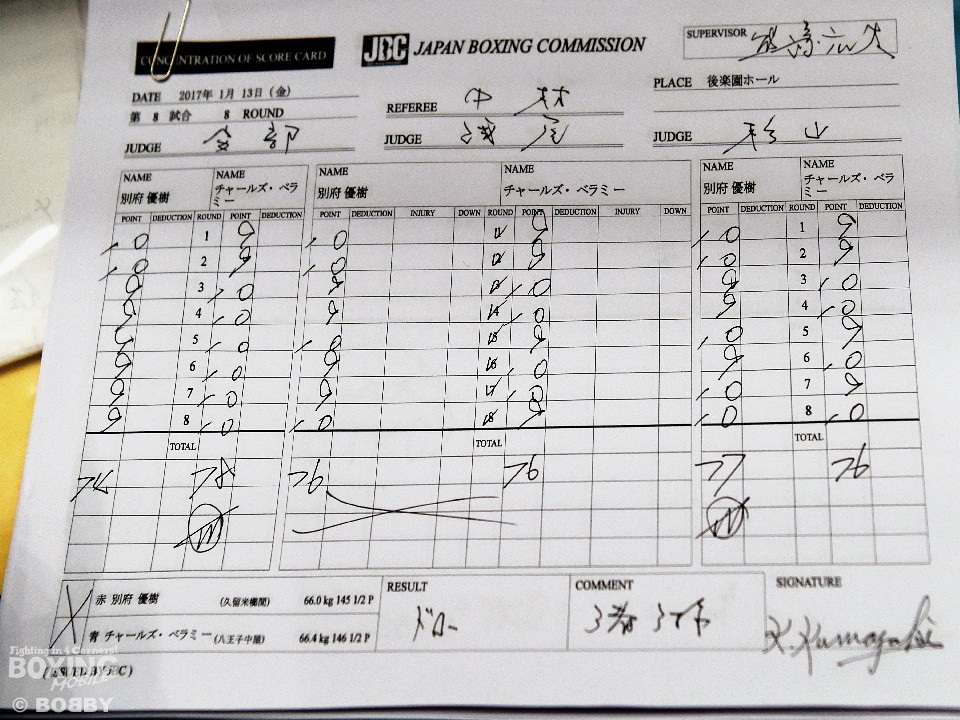 CONCENTRATION OF SCORE CARD
JBC JAPAN BOXING COMMISSION
SUPERVISOR
DATE 2017年 1月 13日（金）
第 8 試合 8 ROUND
REFEREE 中 村
PLACE 後楽園ホール
JUDGE
JUDGE
JUDGE 杉 山
NAME NAME NAME NAME NAME NAME
別府 優樹 チャールズ・ベラミー 別府 優樹 チャールズ・ベラミー 別府 優樹 チャールズ・ベラミー
POINT DEDUCTION ROUND POINT DEDUCTION POINT DEDUCTION INJURY DOWN ROUND POINT DEDUCTION INJURY DOWN POINT DEDUCTION ROUND POINT DEDUCTION
10 1 9 10 1 9 10 1 9
10 2 9 10 2 9 10 2 9
9 3 10 9 3 10 9 3 10
9 4 10 9 4 10 9 4 10
9 5 10 10 5 9 10 5 9
9 6 10 9 6 10 9 6 10
9 7 10 9 7 10 10 7 9
9 8 10 10 8 9 10 8 10
TOTAL TOTAL TOTAL
74 78 76 76 77 76
赤 別府 優樹 (久留米櫛間) 66.0 kg 145 1/2 P
青 チャールズ・ベラミー (八王子中屋) 66.4 kg 146 1/2 P
RESULT
ドロー
COMMENT
SIGNATURE
K. Kumagaki
(ISSUED BY JBC)
Fighting in 4 Corners!
BOXING
MOBILE
© BOBBY